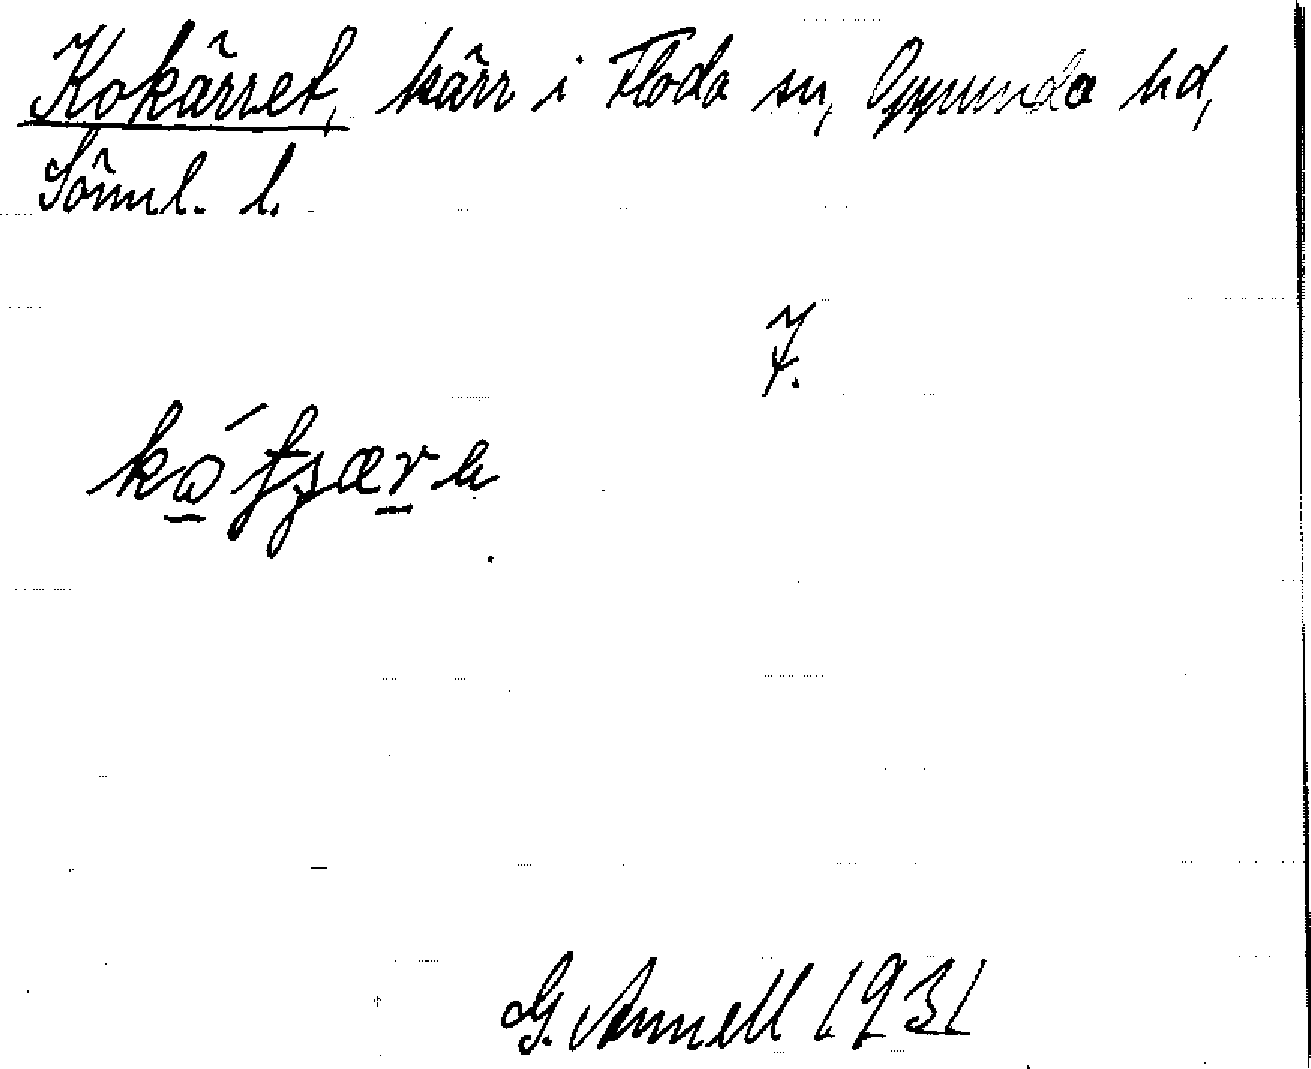 Kokärret, kärr i Floda sn, Oppunda hd,
Sörml. l.
7.
G. Annell 1931